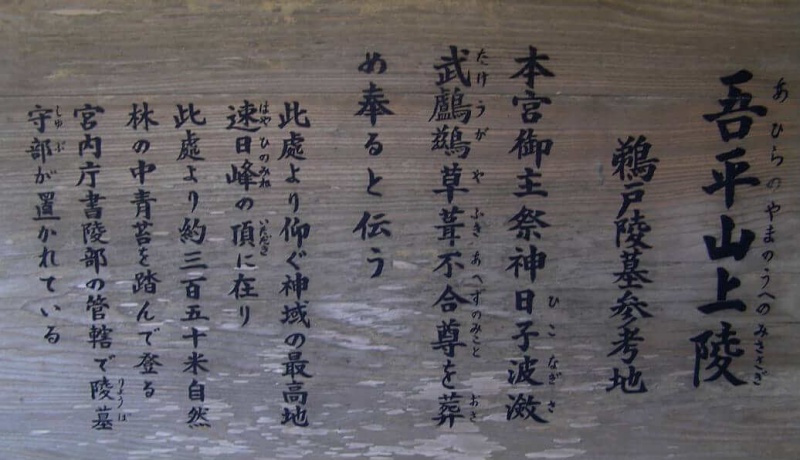 吾平山上陵
あひらのやまのうへのみささぎ
鵜戸陵墓参考地
本宮御主祭神日子波瀲
ひこなぎさ
武鸕鷀草葺不合尊を葬
たけうがやふきあへずのみこと おさ
め奉ると伝う
此處より仰ぐ神域の最高地
速日峰の頂に在り
はやひのみね いただき
此處より約三百五十米自然
林の中青苔を踏んで登る
宮内庁書陵部の管轄で陵墓
りょうぼ
守部が置かれている
しゅぶ